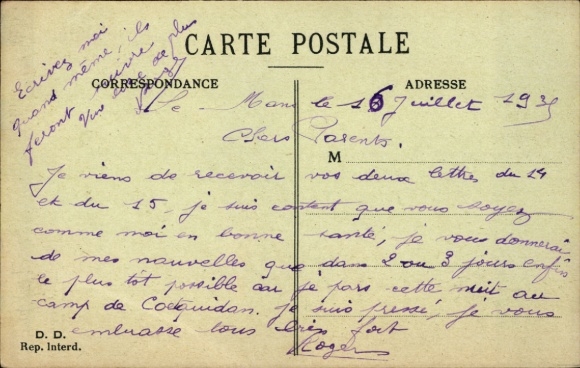 Ecrivez moi
quand même, ils
feront suivre
CARTE POSTALE
CORRESPONDANCE
ADRESSE
Le Mans le 16 Juillet 193
Chers Parents.
M
Je viens de recevoir vos deux lettres du 14
et du 15, je suis content que vous soyez
comme moi en bonne santé, je vous donnerai
de mes nouvelles que dans 2 ou 3 jours enfin
le plus tôt possible car je pars cette nuit au
camp de Coëtquidan. je suis pressé, je vous
embrasse tous bien fort
Roger
D. D.
Rep. Interd.